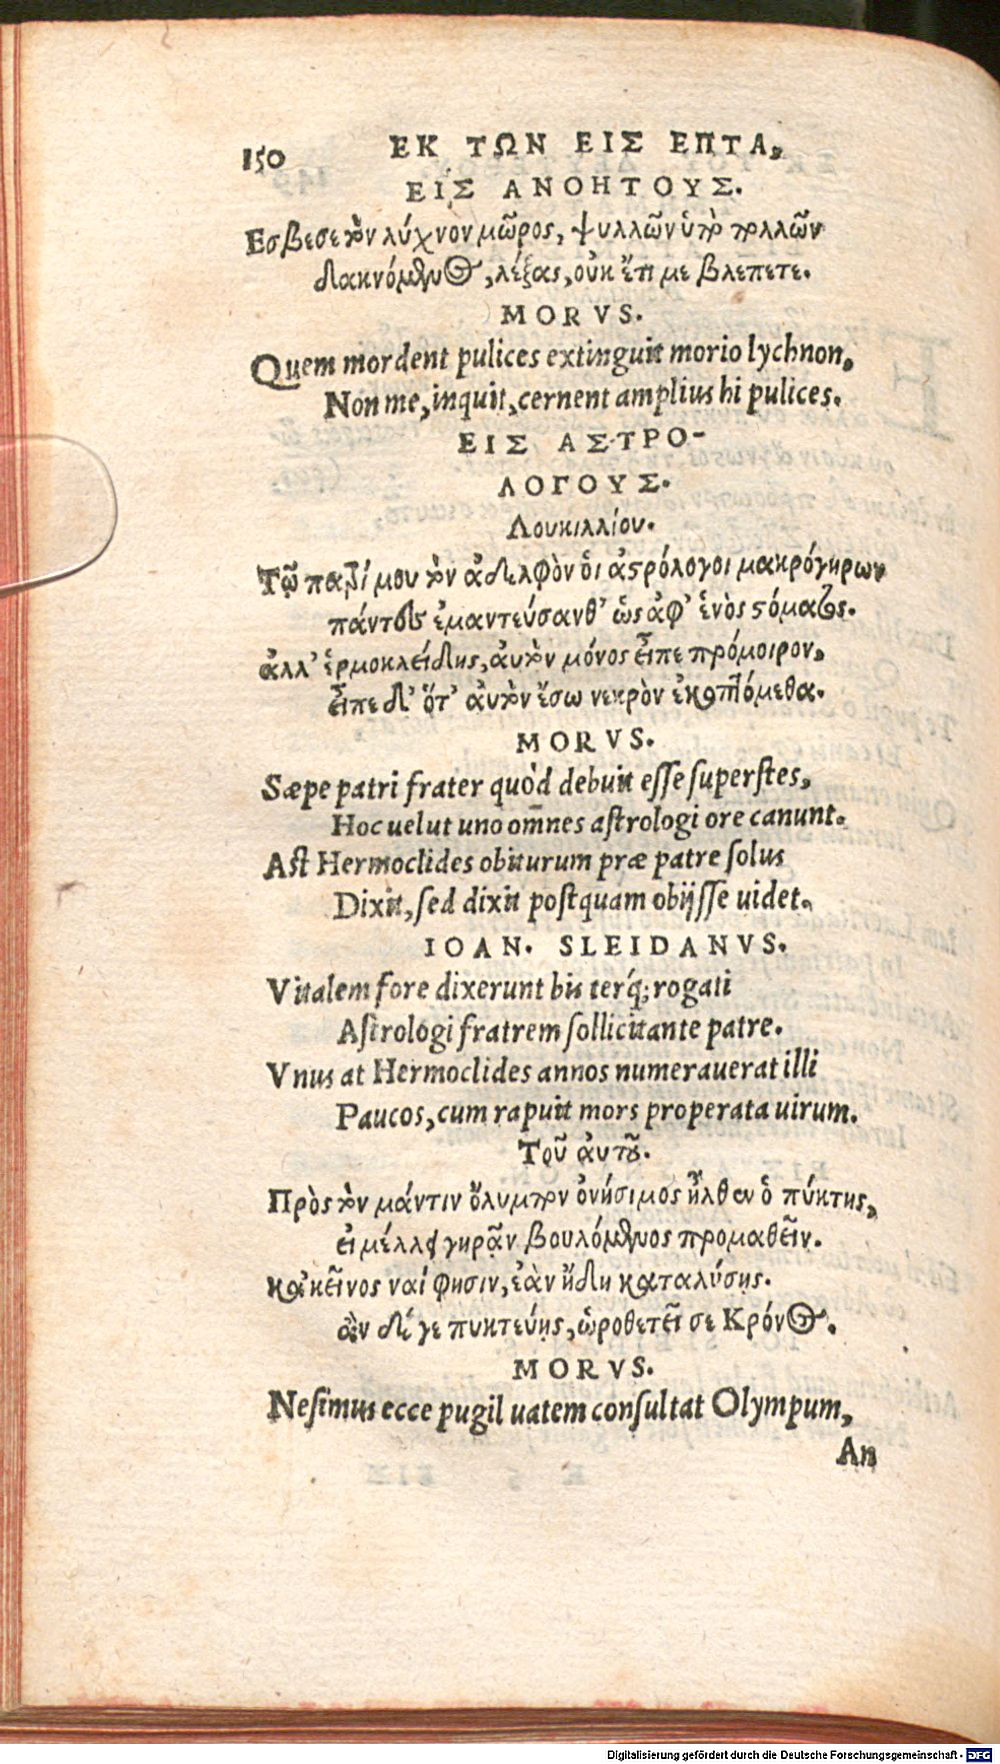 150 ΕΚ ΤΩΝ ΕΙΣ ΕΠΤΑ,
ΕΙΣ ΑΝΟΗΤΟΥΣ.
Εσβεσε τὸν λύχνον μῶρος, ψυλλῶν ὑπὸ πολλῶν
δακνόμενος, λέξας, οὐκ ἔτι με βλεπετε.
MORVS.
Quem mordent pulices extinguit morio lychnon,
Non me, inquit, cernent amplius hi pulices.
ΕΙΣ ΑΣΤΡΟ-
ΛΟΓΟΥΣ.
Λουκιλλίου.
Τῷ πατρί μου τὸν ἀδελφὸν ὁι ἀστρόλογοι μακρόγηρων
πάντες ἐμαντεύσανθ' ὡς ἀφ' ἑνὸς στόματος.
ἀλλ' ἑρμοκλείδης, ἀυτὸν μόνος εἶπε πρόμοιρον,
εἶπε δ' ὅτ' ἀυτὸν ἔσω νεκρὸν ἐκοπτόμεθα.
MORVS.
Sæpe patri frater quòd debuit esse superstes,
Hoc uelut uno om̄nes astrologi ore canunt.
Ast Hermoclides obiturum præ patre solus
Dixit, sed dixit postquam obijsse uidet.
IOAN. SLEIDANVS.
Vitalem fore dixerunt bis terq́; rogati
Astrologi fratrem sollicitante patre.
Vnus at Hermoclides annos numerauerat illi
Paucos, cum rapuit mors properata uirum.
Τοῦ ἀυτοῦ.
Πρὸς τὸν μάντιν ὄλυμπον ὀνήσιμος ἦλθεν ὁ πύκτης,
εἰ μέλλει γηρᾷν βουλόμενος προμαθεῖν.
κᾀκεῖνος ναί φησιν, ἐὰν ἤδη καταλύσῃς.
ἂν δέ γε πυκτεύῃς, ὡροθετεῖ σε Κρόνος.
MORVS.
Nesimus ecce pugil uatem consultat Olympum,
An
Digitalisierung gefördert durch die Deutsche Forschungsgemeinschaft - DFG